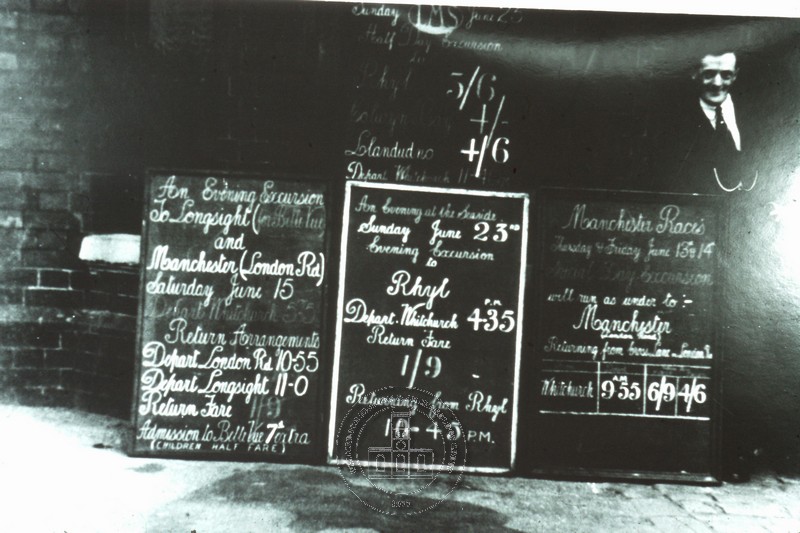 Sunday LMS June 23
Half Day Excursion
to
Rhyl 5/6
4/-
Llandudno 4/6
Depart Whitchurch 11-
An Evening Excursion
To Longsight (for Belle Vue
and
Manchester (London Rd)
Saturday June 15
Depart Whitchurch
Return Arrangements
Depart London Rd 10-55
Depart Longsight 11-0
Return Fare 1/9
Admission to Belle Vue 7d extra
(CHILDREN HALF FARE)
An Evening at the Seaside
Sunday June 23RD
Evening Excursion
to
Rhyl
Depart. Whitchurch 4-35 P.M.
Return Fare
1/9
Returning from Rhyl
10-45 P.M.
Manchester Races
Thursday & Friday June 13 & 14
Day Excursion
will run as under to :-
Manchester
(London Road)
Returning from London Rd
Whitchurch 9-55 A.M. 6/9 4/6